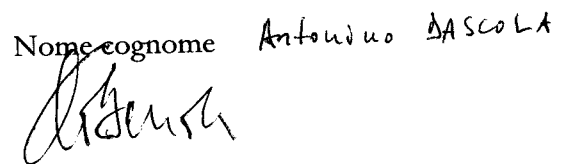 Nome cognome Antonino DASCOLA